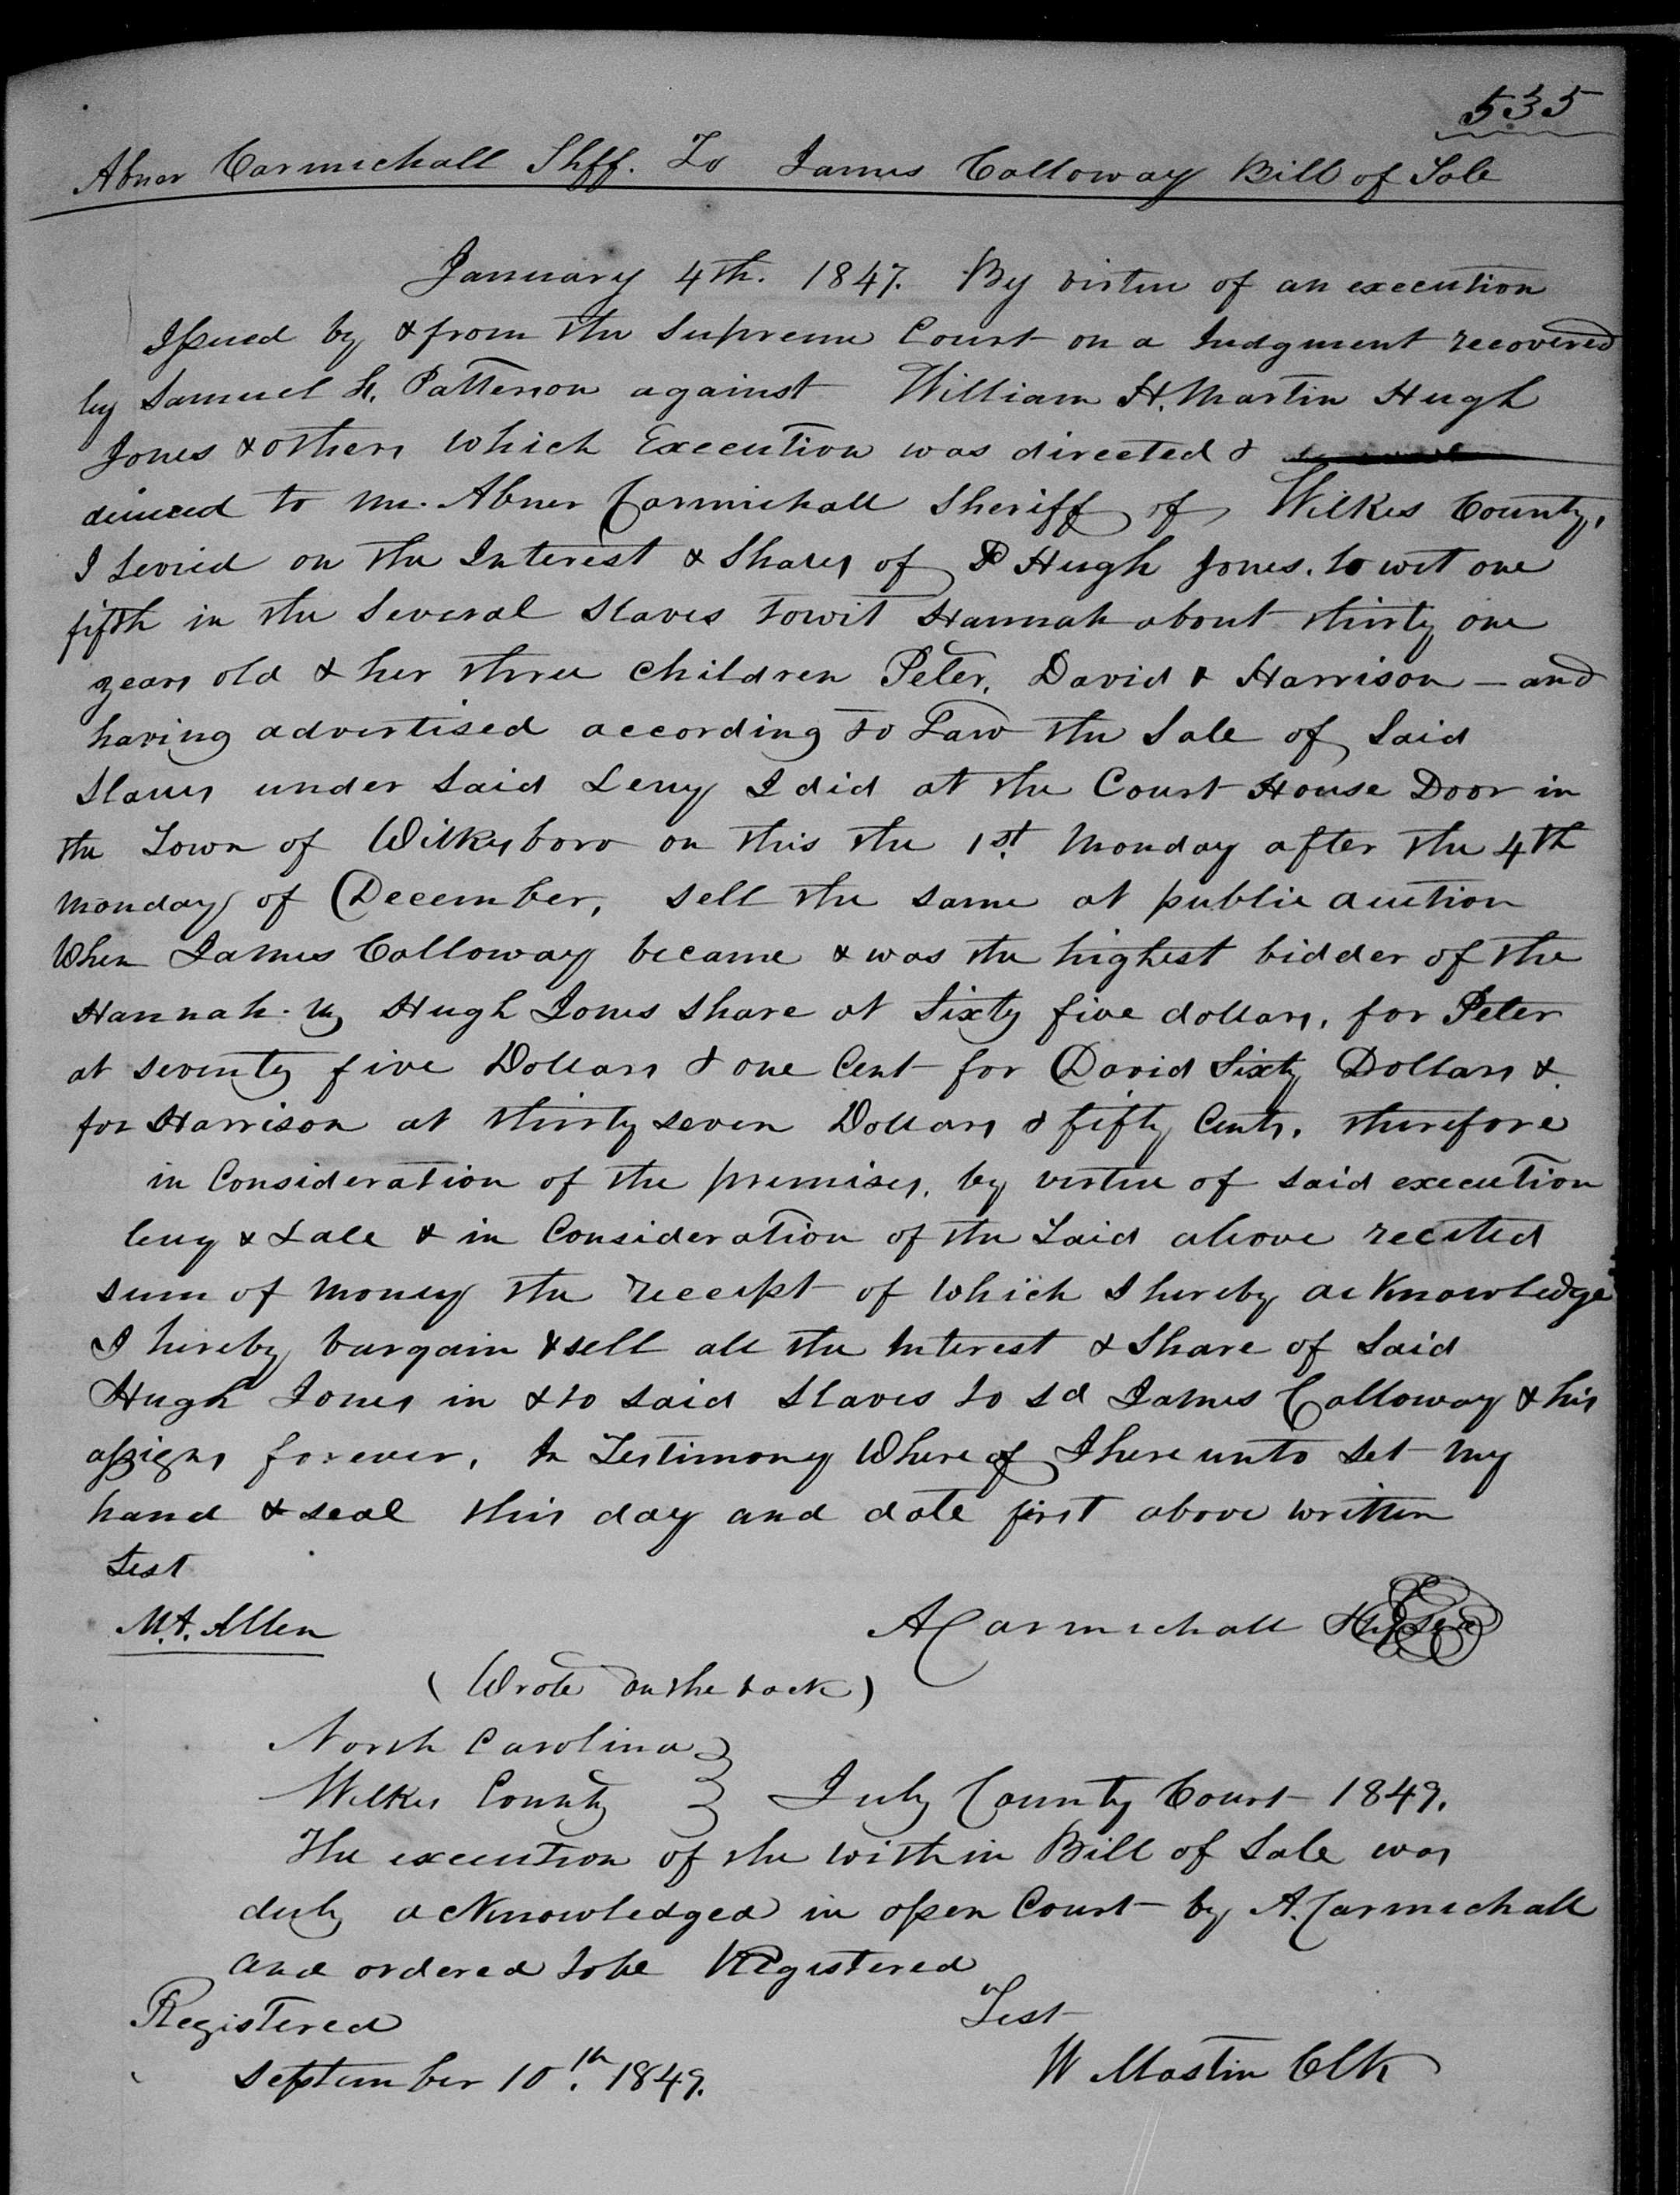 535
Abner Carmichall Shff. To James Calloway Bill of Sale
January 4th. 1847. By virtue of an execution
Issued by & from the Supreme Court on a Judgment recovered
by Samuel F. Patterson against William H. Martin Hugh
Jones & others which Execution was directed &
to me. Abner Carmichall Sheriff of Wilkes County,
I levied on the Interest & Shares of Hugh Jones. to wit one
fifth in the Several Slaves towit Hannah about thirty one
years old & her three children Peter, David & Harrison – and
having advertised according to Law the Sale of Said
Slaves under Said Levy I did at the Court House Door in
the Town of Wilkesboro on this the 1st. Monday after the 4th
Monday of December, sell the same at public auction
When James Calloway became & was the highest bidder of the
Hannah. Hugh Jones share at Sixty five dollars, for Peter
at seventy five Dollars & one Cent for David Sixty Dollars &
for Harrison at thirty seven Dollars & fifty Cents. therefore
in Consideration of the premises, by virtue of said execution
levy & Sale & in Consideration of the Said above recited
sum of money the receipt of which I hereby acknowledge
I hereby bargain & sell all the Interest & Share of Said
Hugh Jones in & to said Slaves to sd James Calloway & his
assigns forever, In Testimony Where of I here unto Set my
hand & seal this day and date first above written
Test
M. A. Allen
A Carmichall
(Wrote on the back)
North Carolina
Wilkes County } July County Court 1849.
The execution of the within Bill of Sale was
duly acknowledged in open Court by A. Carmichall
and ordered to be Registered
Registered Test
September 10th. 1849. W Mastin Clk